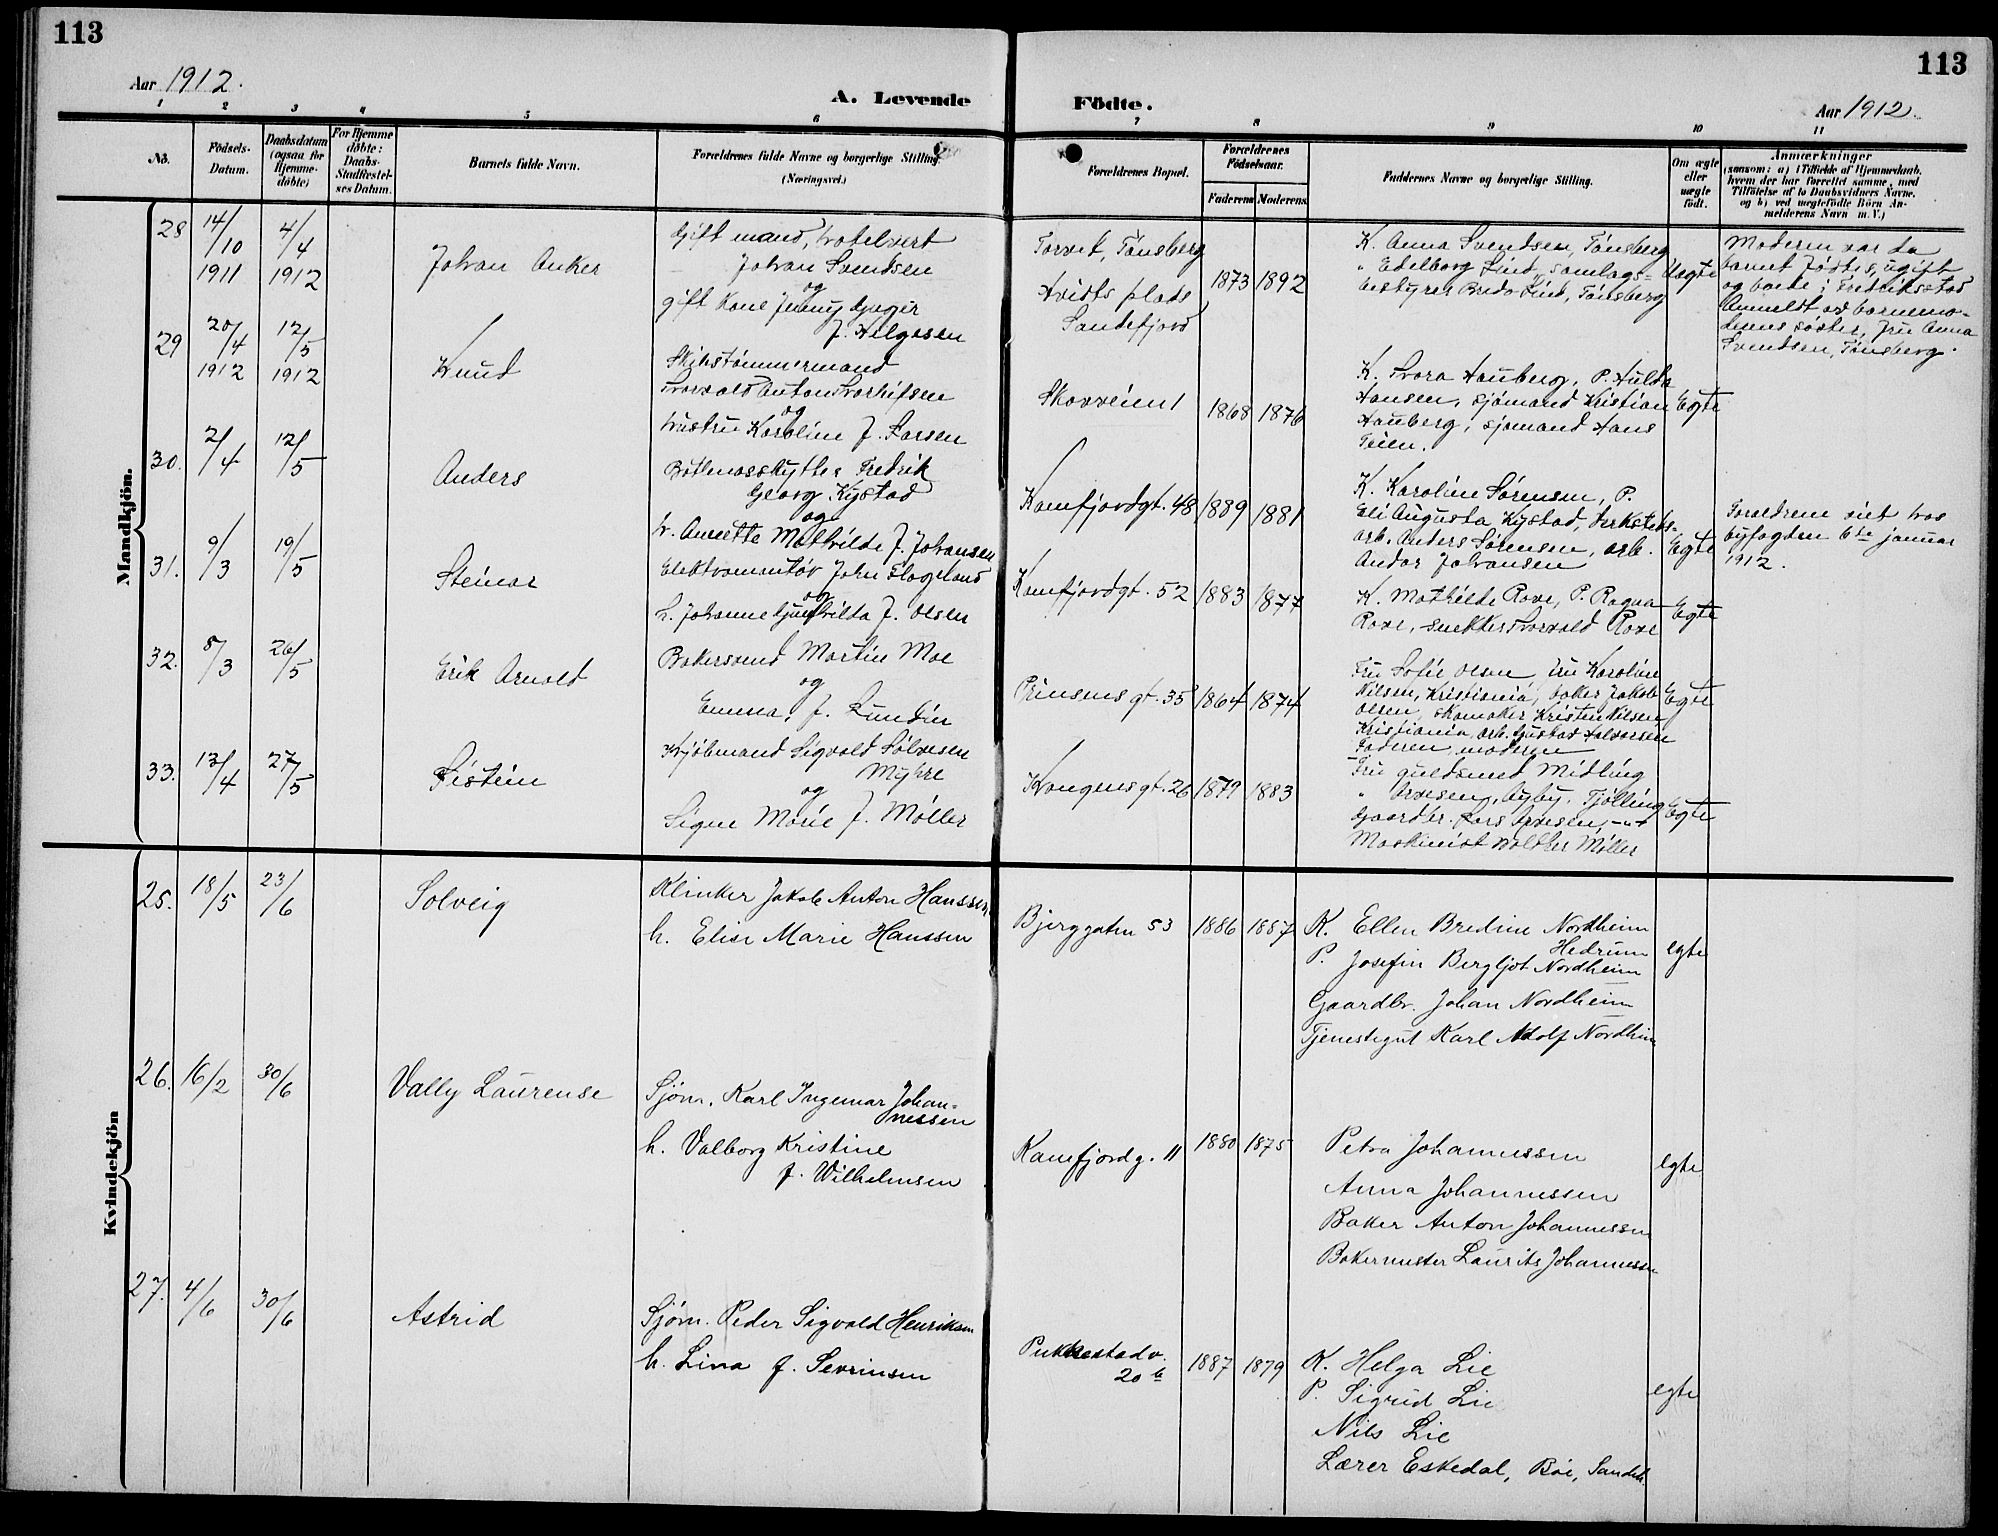 113
113
Aar 1912.
A. Levende
Födte.
Aar 1912.
1 2 3 4 5 6 7 8 9 10 11
No.
Födsels-
Datum.
Daabsdatum
(ogsaa for
Hjemme-
döbte)
For Hjemme
döbte:
Daabs-
Stadfæstel-
ses Datum.
Barnets fulde Navn.
Forældrenes fulde Navne og borgerlige Stilling
(Næringsvei.)
Forældrenes Bopæl.
Forældrenes
Födselsaar.
Faderens Moderens
Faddernes Navne og borgerlige Stilling.
Om ægte
eller
uægte
födt.
Anmærkninger
(saasom: a) i Tilfælde af Hjemmedaab,
hvem der har forrettet samme, med
Tilföielse af to Daabsvidners Navne.
og b) ved uægtefödte Börn An-
melderens Navn m. V.)
Mandkjön.
28
14/10
1911
4/4
1912
Johan Anker
Gift mand, hotelvert
Johan Svendsen
og
gift Kone Jenny
f. Helgesen
Torvet, Tønsberg
Hvidts plads
Sandefjord
1873 1892
K. Anna Svendsen, Tønsberg
" Edelborg Lind, samlags=
bestyrer Lind, Tønsberg
Uægte
Moderen var da
barnet fødtes, ugift
og boede i Fredriksstad
Anmeldt av barnemo-
derens søster, Fru Anna
Svendsen, Tønsberg.
29
20/4
1912
12/5
1912
Knud
Skibstømmermand
Thorvald Anton
og
hustru Karoline f. Larsen
1
1868 1876
K. Thora Hauberg, P. Hulda
Hansen, sjømand Kristian
Hauberg, sjømand Hans
Teien.
Egte
30.
2/4
12/5
Anders
Fredrik
Georg Kystad
og
h. Annette Mathilde f. Johansen
Kamfjordgt. 48
1889 1881
K. Karoline Sørensen, P.
Eli Augusta Kystad,
arb. Anders Sørensen, arb.
Andor Johansen
Egte
Foraldrene viet hos
byfogden 6te januar
1912.
31.
9/3
19/5
Steinar
Elektromontør John Flogeland
og
h. Johanne Gunhilda f. Olsen
Kamfjordgt. 52
1883 1877
K. Mathilde Roxe, P. Ragna
Roxe, snekker Thorvald Roxe
Egte
32.
8/3
26/5
Erik Arnold
Bakersvend Martin Moe
og
Emma, f. Lundin
Prinsensgt. 35
1864 1874
Fru Sofie Olsen, Fru Karoline
Nilsen, Kristiania, baker Jakob
Olsen, skomaker Kristen Nilsen
Kristiania, arb. Gustav Halvorsen
Faderen, moderen
Egte
33.
13/4
27/5
Kjøbmand Sigvald Sølvesen
Myhre
og
Signe Marie f. Møller
Kongensgt. 26
1879 1883
Fru guldsmed Midling
" Arvesen, Tjølling
Gaardbr. Lars Arvesen, -"-
Maskinist Møller
Egte
Kvindekjön
25.
18/5
23/6
Solveig
Klinker Jakob Anton Hanssen,
h. Elise Marie Hanssen
Bjerggaten 53
1886 1887
K. Ellen Bredine Nordheim
Hedrum
P. Josefin Bergljot Nordheim
Gaardbr. Johan Nordheim
Tjenestegut Karl Adolf Nordheim
egte
26.
16/2
30/6
Vally Laurense
Sjøm. Karl Ingemar Johan-
nessen
h. Valborg Kristine
f. Wilhelmsen
Kamfjordg. 11
1880 1875
Petra Johannessen
Anna Johannessen
Baker Anton Johannessen
Bakermester Laurits Johannessen
egte
27.
4/6
30/6
Astrid
Sjøm. Peder Sigvald Henriksen
h. Lina f. Sevrinsen
Pukkestadv.
20 b
1887 1879
K. Helga Lie
P. Sigrid Lie
Nils Lie
Lærer Eskedal, Bøe, Sandeh.
egte